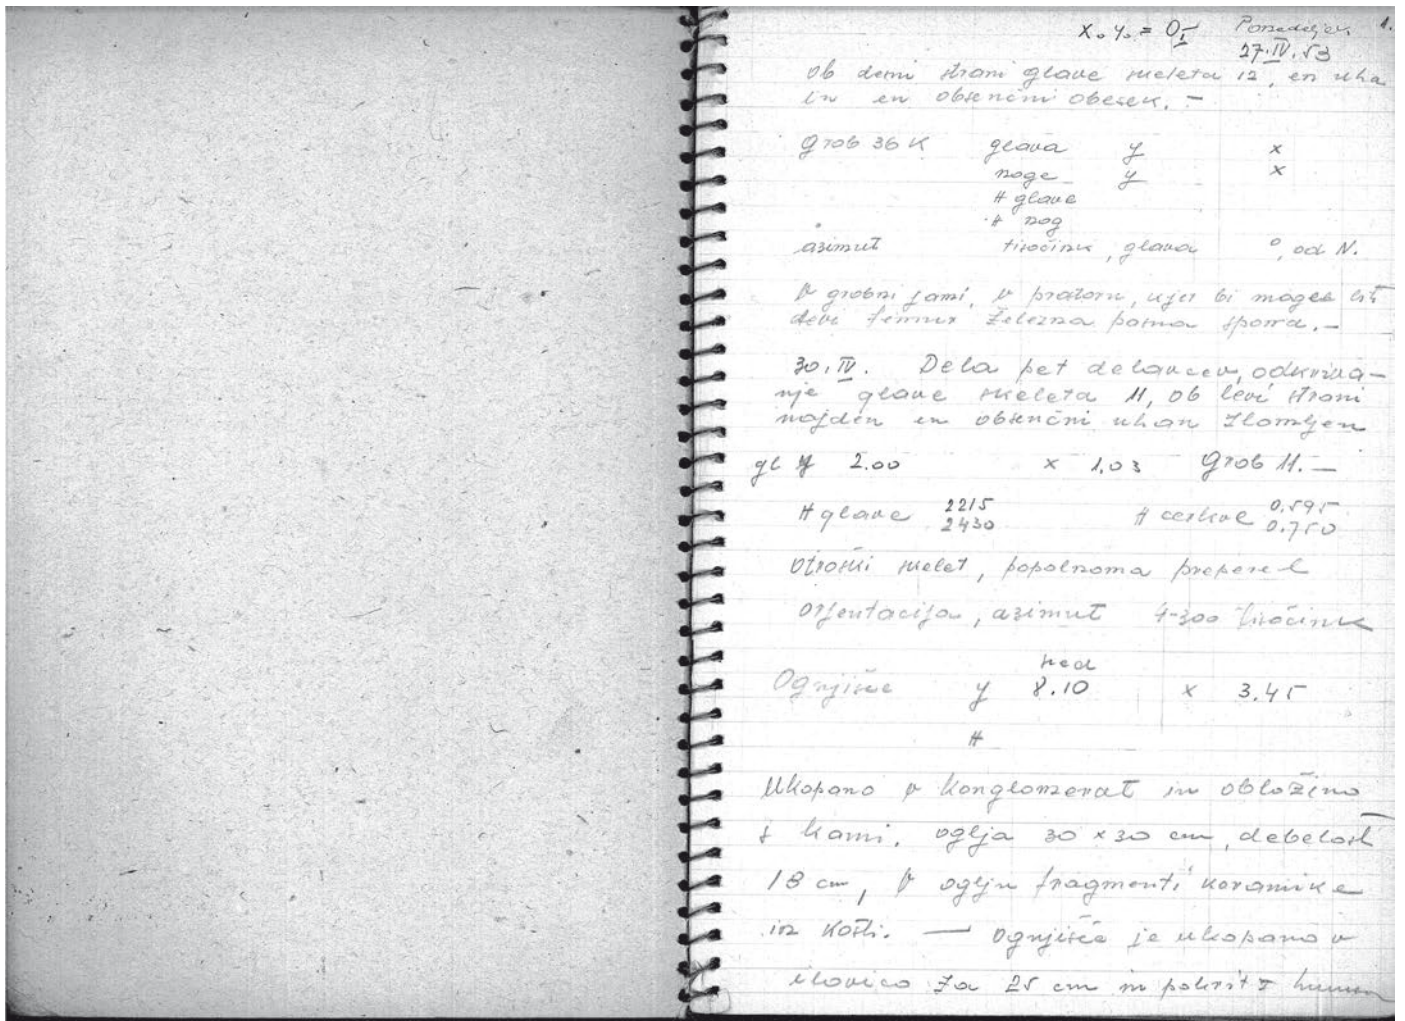 x₀ y₀ = 0 Ponedeljek 1.
27.IV.53
ob desni strani glave skeleta 12, en uha
in en obsenčni obesek. –
Grob 36 K glava y x
noge y x
H glave
H nog
azimut tisočink, glava °, od N.
V grobni jami, v prstoru, kjer bi mogel biti
levi femur železna pasna spona. –
30. IV. Dela pet delavcev, odkriva-
nje glave skeleta 11, ob levi strani
najden en obsenčni uhan zlomljen
gl y 2.00 x 1.03 Grob 11. –
H glave 2215 H cerkve 0.595
2430 0.750
Otroški skelet, popolnoma preperel
Orjentacija, azimut 4-300 tisočink
sred
Ognjišče y 8.10 x 3.45
H
Ukopano v konglomerat in obloženo
s kamni, oglja 30 x 30 cm, debelost
18 cm, V oglju fragmenti keramike
in kosti. — Ognjišče je ukopano v
ilovico za 25 cm in pokrito s humusom